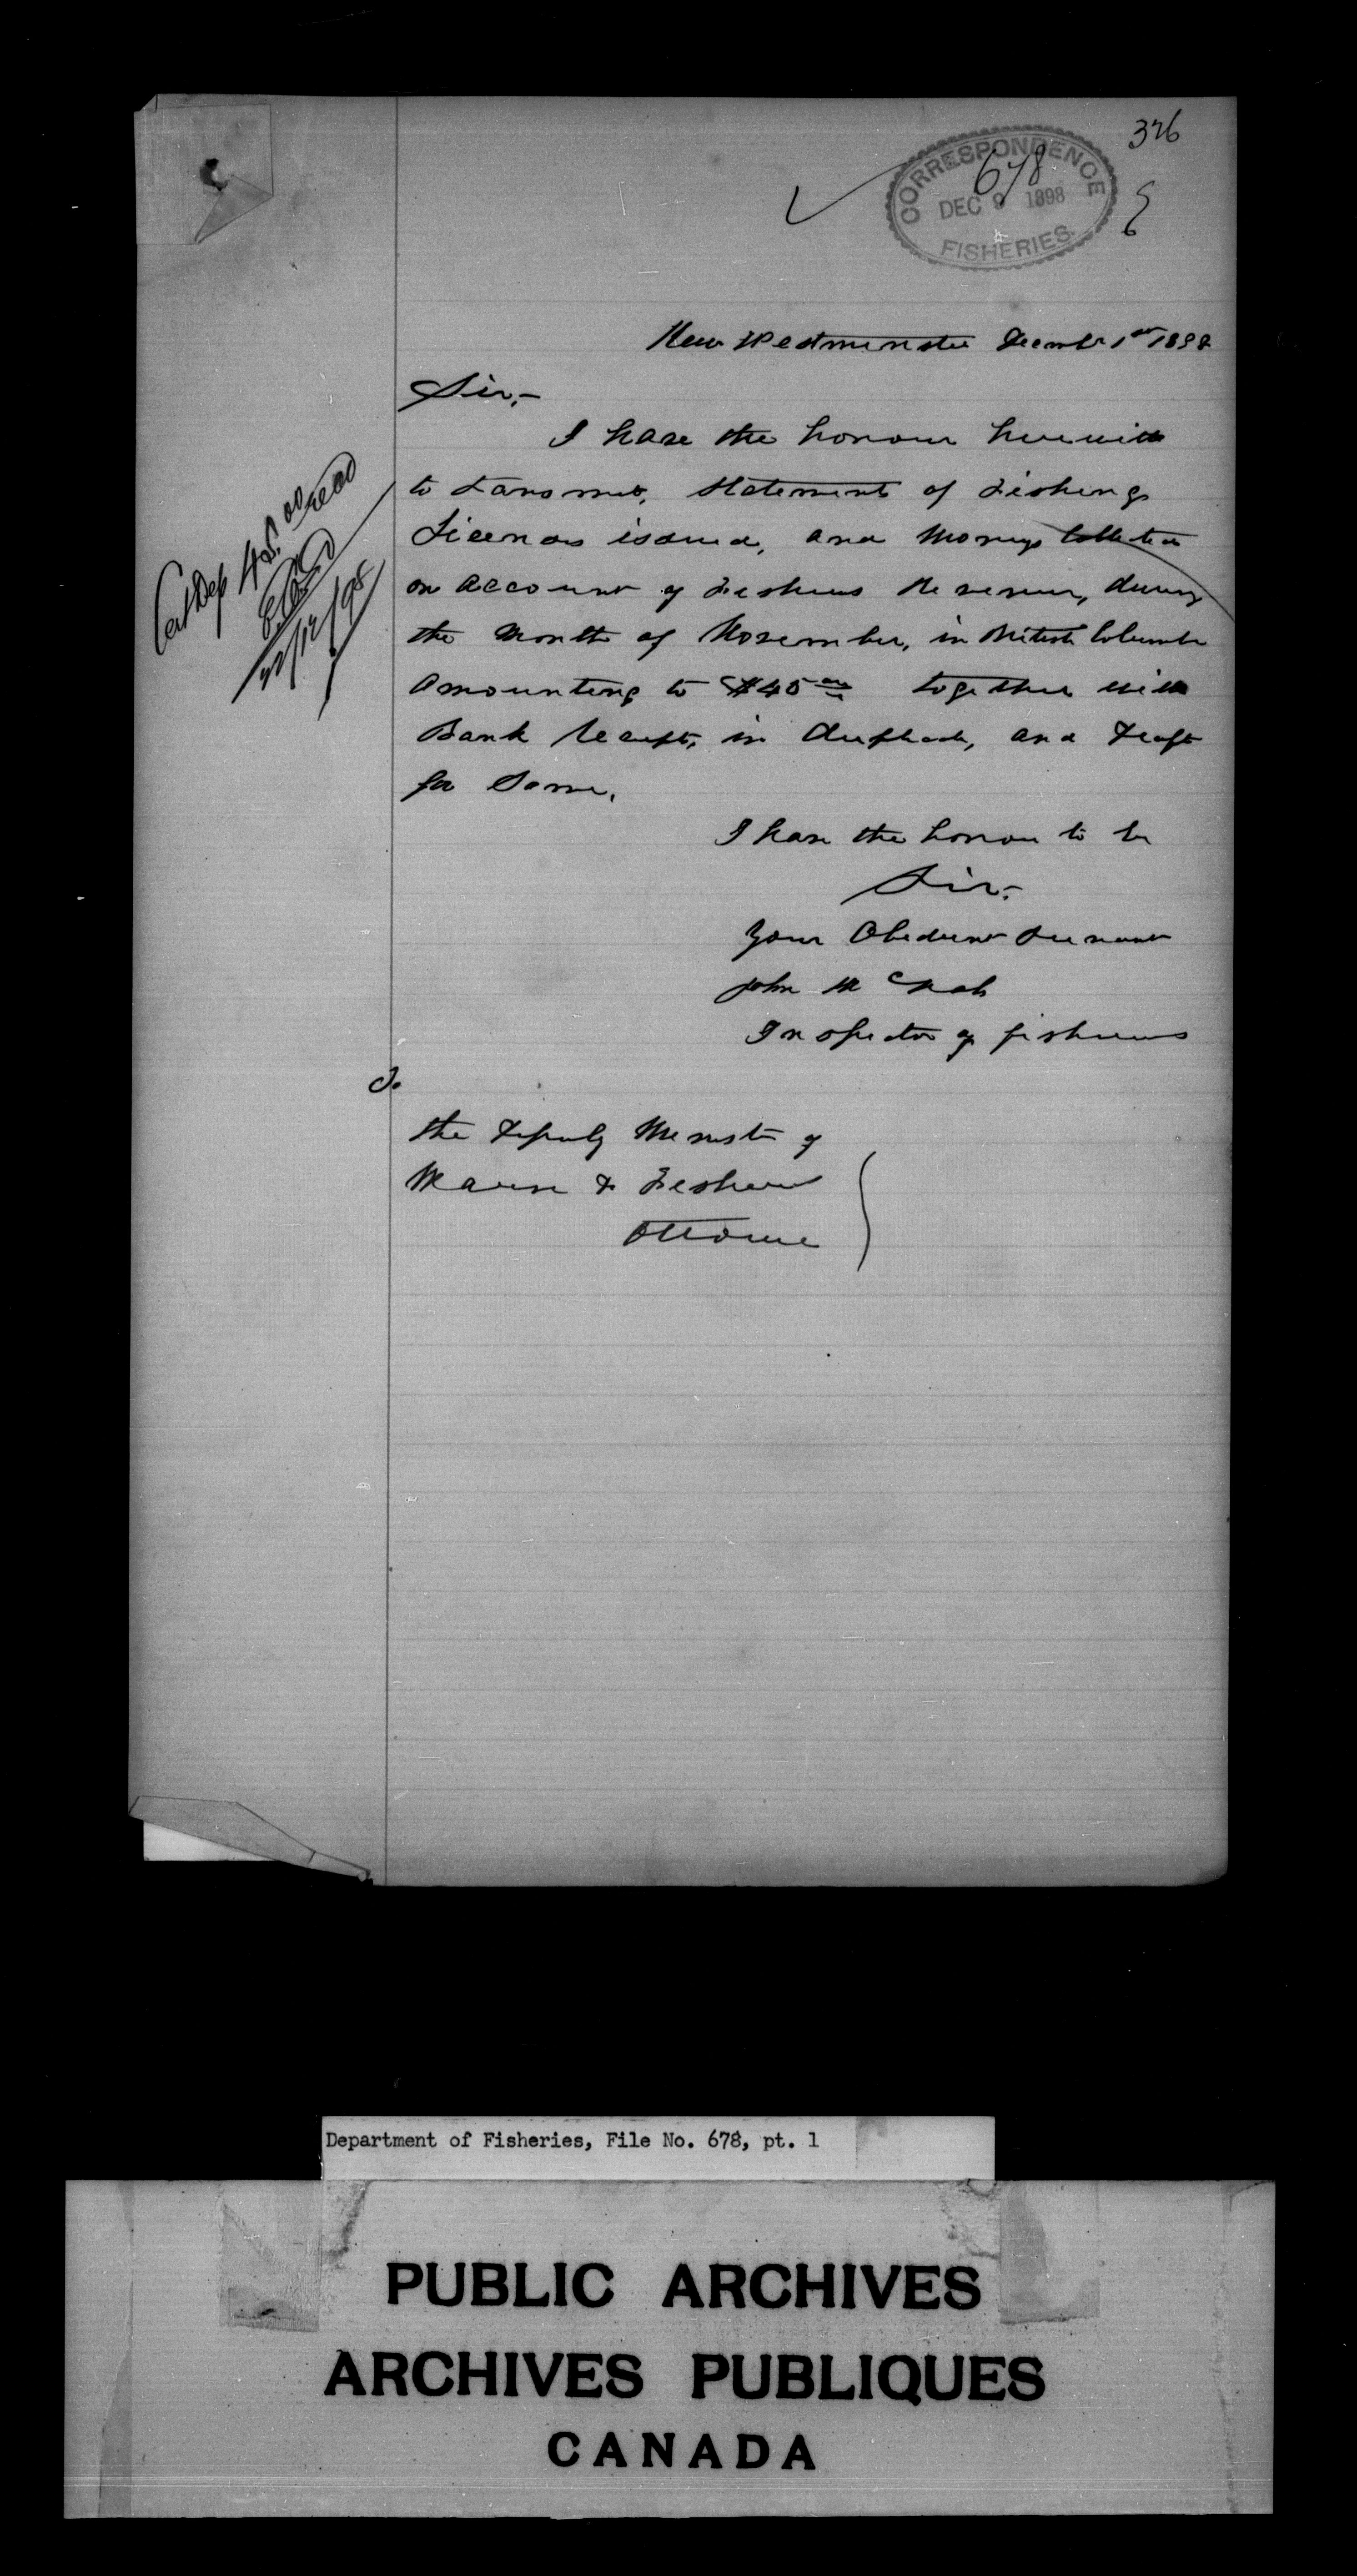 326
CORRESPONDENCE
678
DEC 9 1898
FISHERIES
New Westminster December 1st 1898
Sir,-
I have the honour herewith
to transmit, statement of Fishing
Licenses issued, and moneys Collected
on account of Fisheries Revenue, during
the Month of November, in British Columbia
Amounting to $45 00 together with
Bank Receipts, in Duplicate, and Draft
for Same.
I have the honour to be
Sir,-
Your Obedient Servant
John McNab
Inspector of fisheries
To
the Deputy Minister of
Marine & Fisheries
Ottawa
Cert Dep 45.00
22/12/98
Department of Fisheries, File No. 678, pt. 1
PUBLIC ARCHIVES
ARCHIVES PUBLIQUES
CANADA